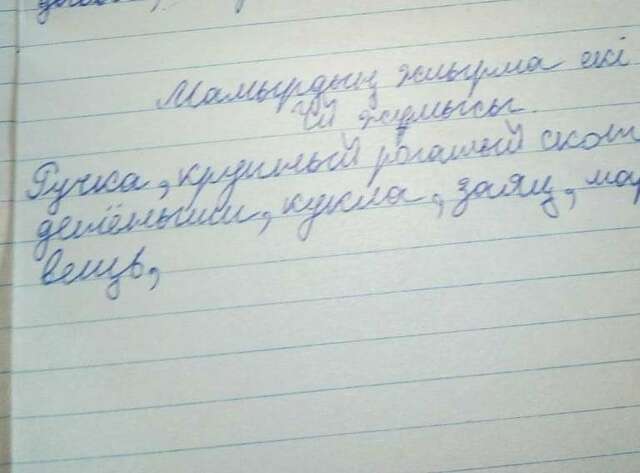 Мамырдың жиырма екі
Үй жұмысы
Ручка, крупный рогатый скот
детёныши, кукла, заяц, мар
вещь,